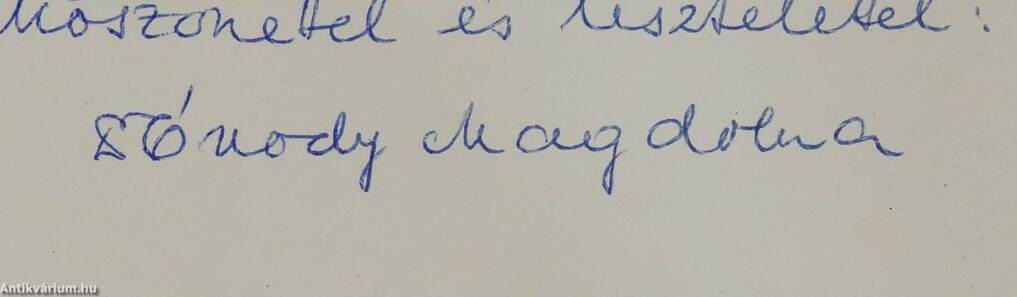 köszönettel és tisztelettel:
Ónody Magdolna
Antikvárium.hu